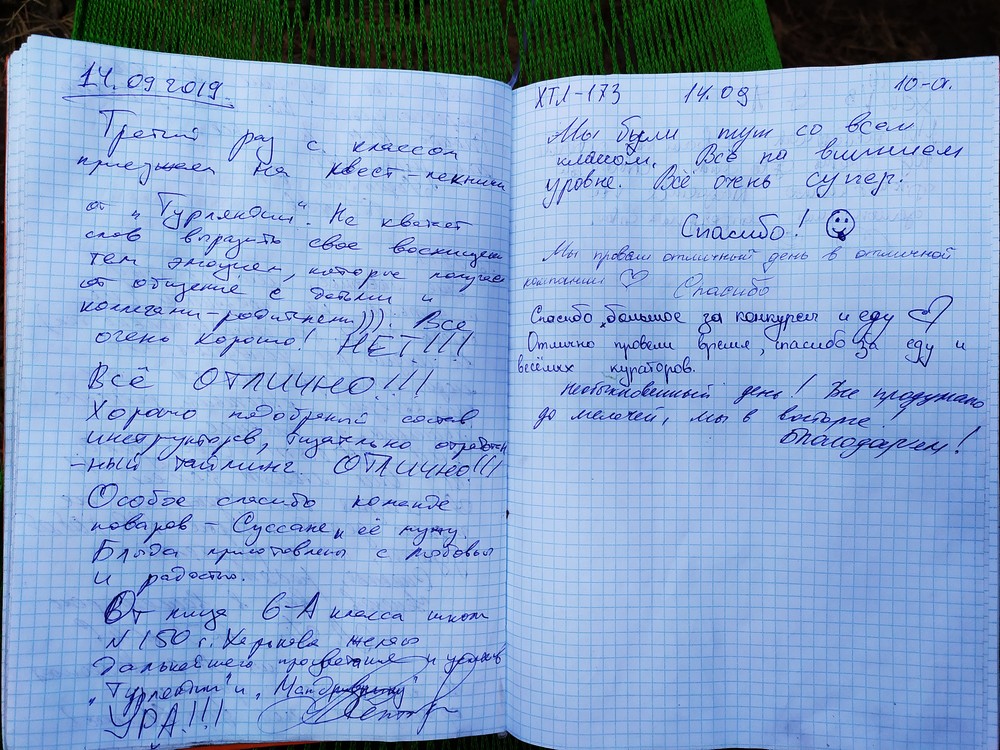 14.09 2019.
Третий раз с классом
приезжаем на квест-пикники
от „Турляндии". Не хватает
слов выразить свое восхищение
тем эмоциям, которые получаем
от общение с детьми и
коллегами-родителями))). Все
очень хорошо! НЕТ!!!
Всё ОТЛИЧНО!!!
Хорошо подобранный состав
инструкторов, тщательно отработан
-ный тайминг. ОТЛИЧНО!!!
Особое спасибо команде
поваров - Суссане и её мужу.
Блюда приготовлены с любовью
и радостью.
От лица 6-А класса школы
N 150 г. Харькова желаю
дальнейшего процветания и успехов
„Турляндии" и „
УРА!!!
ХТЛ-173 14.09 10-а.
Мы были тут со всем
классом. Всё на высшем
уровне. Всё очень супер!
Спасибо!
Мы провели отличный день в отличной
компании Спасибо
Спасибо большое за конкурсы и еду
Отлично провели время, спасибо за еду и
весёлых кураторов.
Необыкновенный день! Все продумано
до мелочей, мы в восторге.
Благодарим!